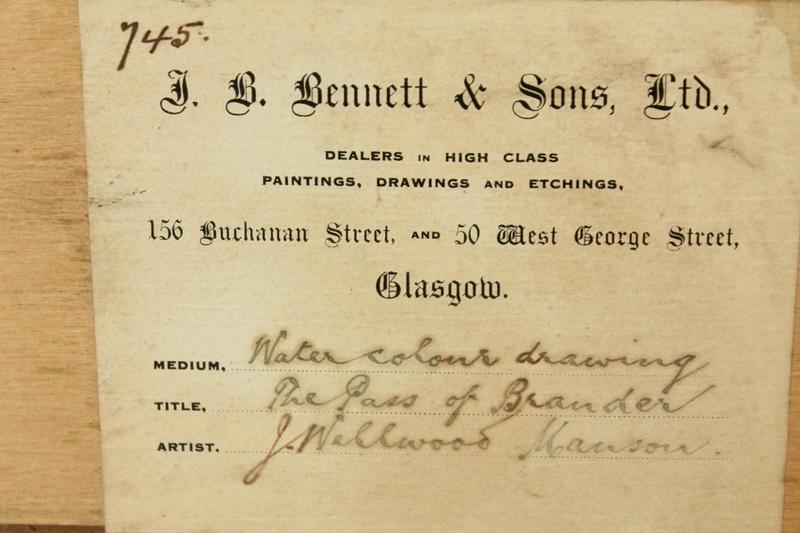 745.
J. B. Bennett & Sons, Ltd.,
DEALERS IN HIGH CLASS
PAINTINGS, DRAWINGS AND ETCHINGS,
156 Buchanan Street, AND 50 West George Street,
Glasgow.
MEDIUM, Water colour drawing
TITLE, The Pass of Brander
ARTIST. J. Wellwood Manson.